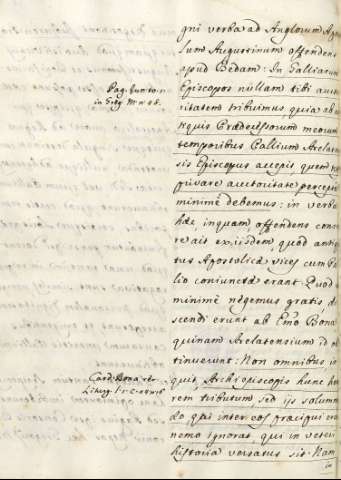 qui verba ad Anglorum Apo
lum Augustinum offendens
apud Bedam: In Galliarum
Episcopos nullam tibi auto
ritatem tribuimus, quia ab
tiquis Prædecessorum meorum
temporibus Pallium Arelaten
sis Episcopus accepit, quem
privare auctoritate percepta
minimè debemus: in verba
hæc inquam, offendens
re ait ex ijsdem, quod anti
tus Apostolicæ vices cum Pal
lio coniunctæ erant. Quod
minimè negemus gratis de
scendi erunt ab Emo Bona
quinam Arelatensium id
tinuerunt: Non omnibus in
quit, Archiepiscopis hunc ho
rem tributum sed ijs solum
do qui inter eos præcipui er
nemo ignorat, qui in veteri
historia versatus sit. Nam
Pag.
in Greg.
Card. Bona rer.
Liturg. l. 1. c.